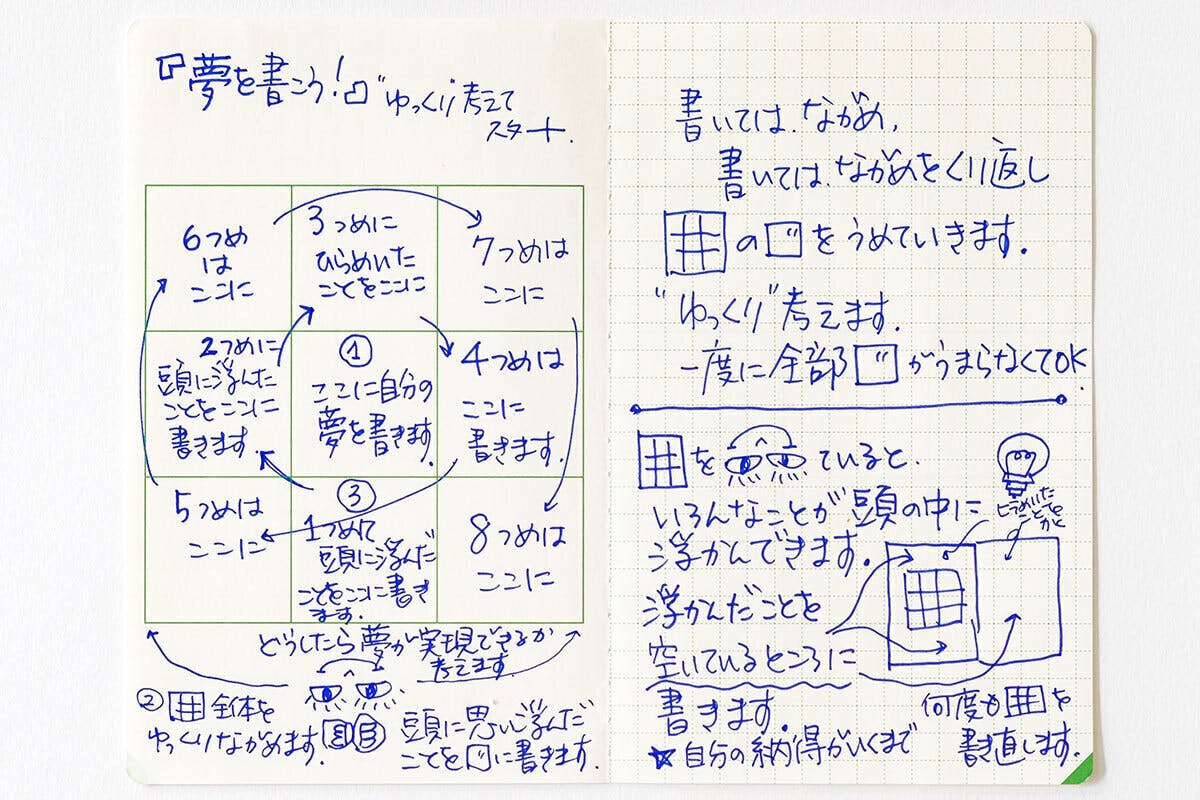 『夢を書こう!』"ゆっくり"考えて
スタート.
6つめ
は
ここに
3つめに
ひらめいた
ことをここに
7つめは
ここに
2つめに
頭に浮んだ
ことをここに
書きます.
①
ここに自分の
夢を書きます.
4つめは
ここに
書きます.
5つめは
ここに
③
1つめて
頭に浮んだ
ことをここに書き
ます.
8つめは
ここに
どうしたら夢が実現できるか
考えます.
② 全体を
ゆっくりながめます.
③ 頭に思い浮んだ
ことを□に書きます.
書いては、ながめ,
書いては、ながめをくり返し
の□をうめていきます.
"ゆっくり"考えます.
一度に全部□がうまらなくてOK
を ていると、
いろんなことが頭の中に
浮かんできます.
浮かんだことを
空いているところに
書きます.
ヒラめいた
ことを
☆自分の納得がいくまで
何度も を
書き直します.